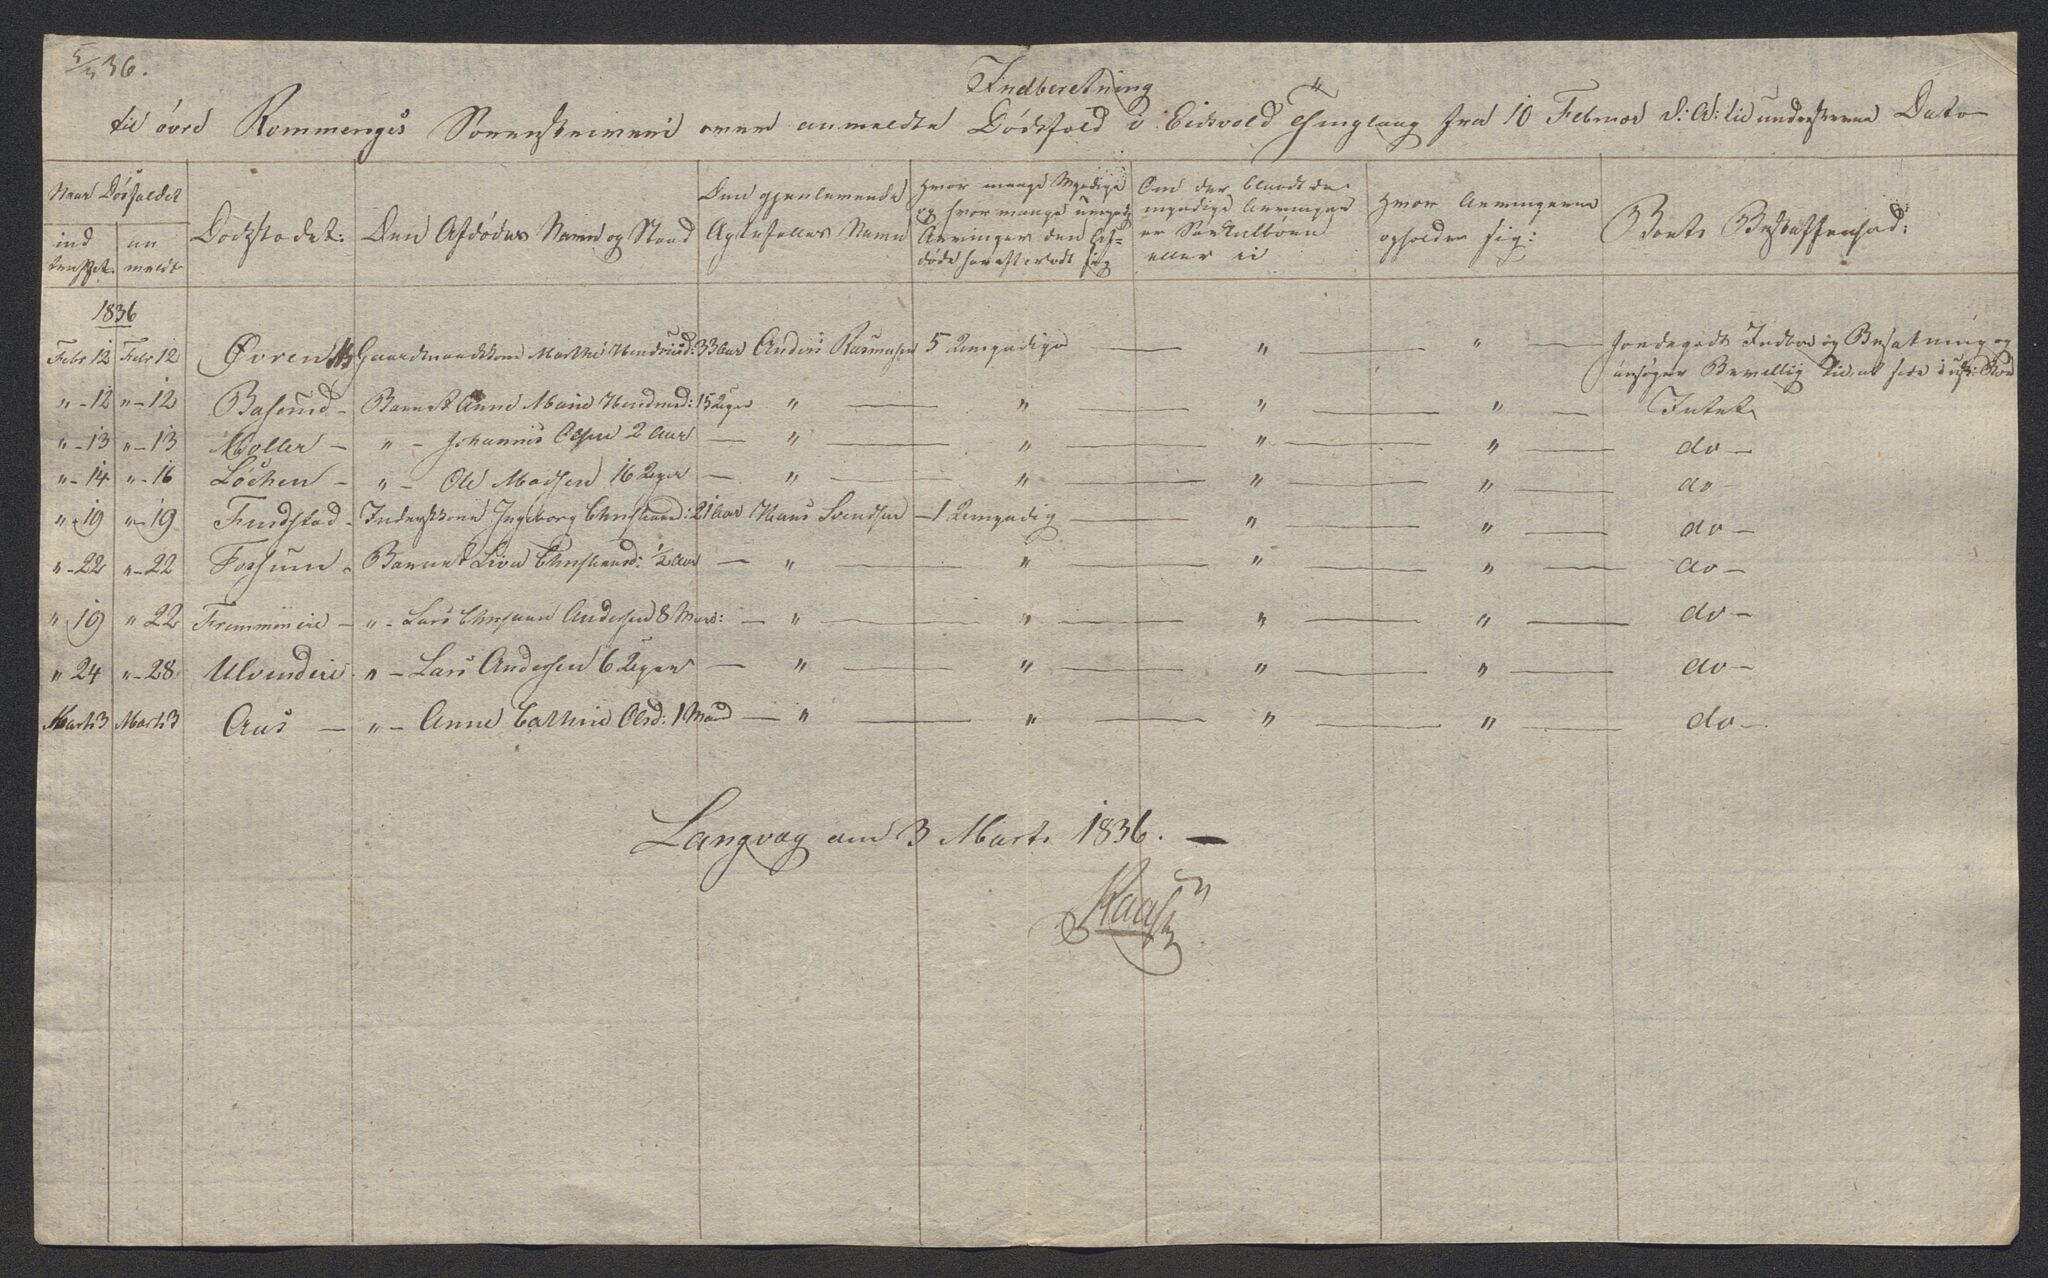 5/3 36.
Indberetning
til øvre Rommerigs Sorenskriveri over anmeldte Dødsfald i Eidsvold Thinglaug fra 10 Februar d: A: til underskrevne Dato
Naar Dødsfaldet
ind truffet
an meldt
Dødsstedet:
Den Afdødes Navn og Stand
Den gjenlevende Ægtefælles Navn
Hvor mange Myndige og hvor mange umyndige Arvinger den Afdøde har efterladt sig
Om der blandt de myndige Arvinger er Særkulbørn eller ei
Hvor Arvingerne opholder sig:
Boets Beskaffenhed:
1836
Febr 12 Febr 12 Øvren Gaardmandskone Marthe Hendrichsd: 33 Aar Anders Rasmusen 5 Umyndige — " — " — Jordegods Indbo og Besætning og
ansøger Bevilling til at side i uskiftet Boe
" - 12 " - 12 Baserud - Barnet Anne Marie Hendrichsd: 15 Uger " — " — " — " — Intet
" - 13 " - 13 Moller - " - Johannes Olsen 2 Aar — " — " — " — " — do -
" - 14 " - 16 Løchen - " - Ole Madsen 16 Uger — " — " — " — " — do -
" - 19 " - 19 Findstad - Inderstkone Ingeborg Christiansd: 21 Aar Hans Svendsen - 1 Umyndig — " — " — do -
" - 22 " - 22 Forsum - Barnet Live Christiansd: 1/2 Aar — " — " — " — " — do -
" 19 " 22 Fremmineie - " - Lars Christian Andersen 8 Maan: — " — " — " — " — do -
" 24 " - 28 Ulvindeie - " - Lars Andersen 6 Uger — " — " — " — " — do -
Marts 3 Marts 3 Aus — " - Anne Cathrine Olsd: 1 Maaned — " — " — " — " — do -
Langvag den 3 Marts 1836. —
Raasch